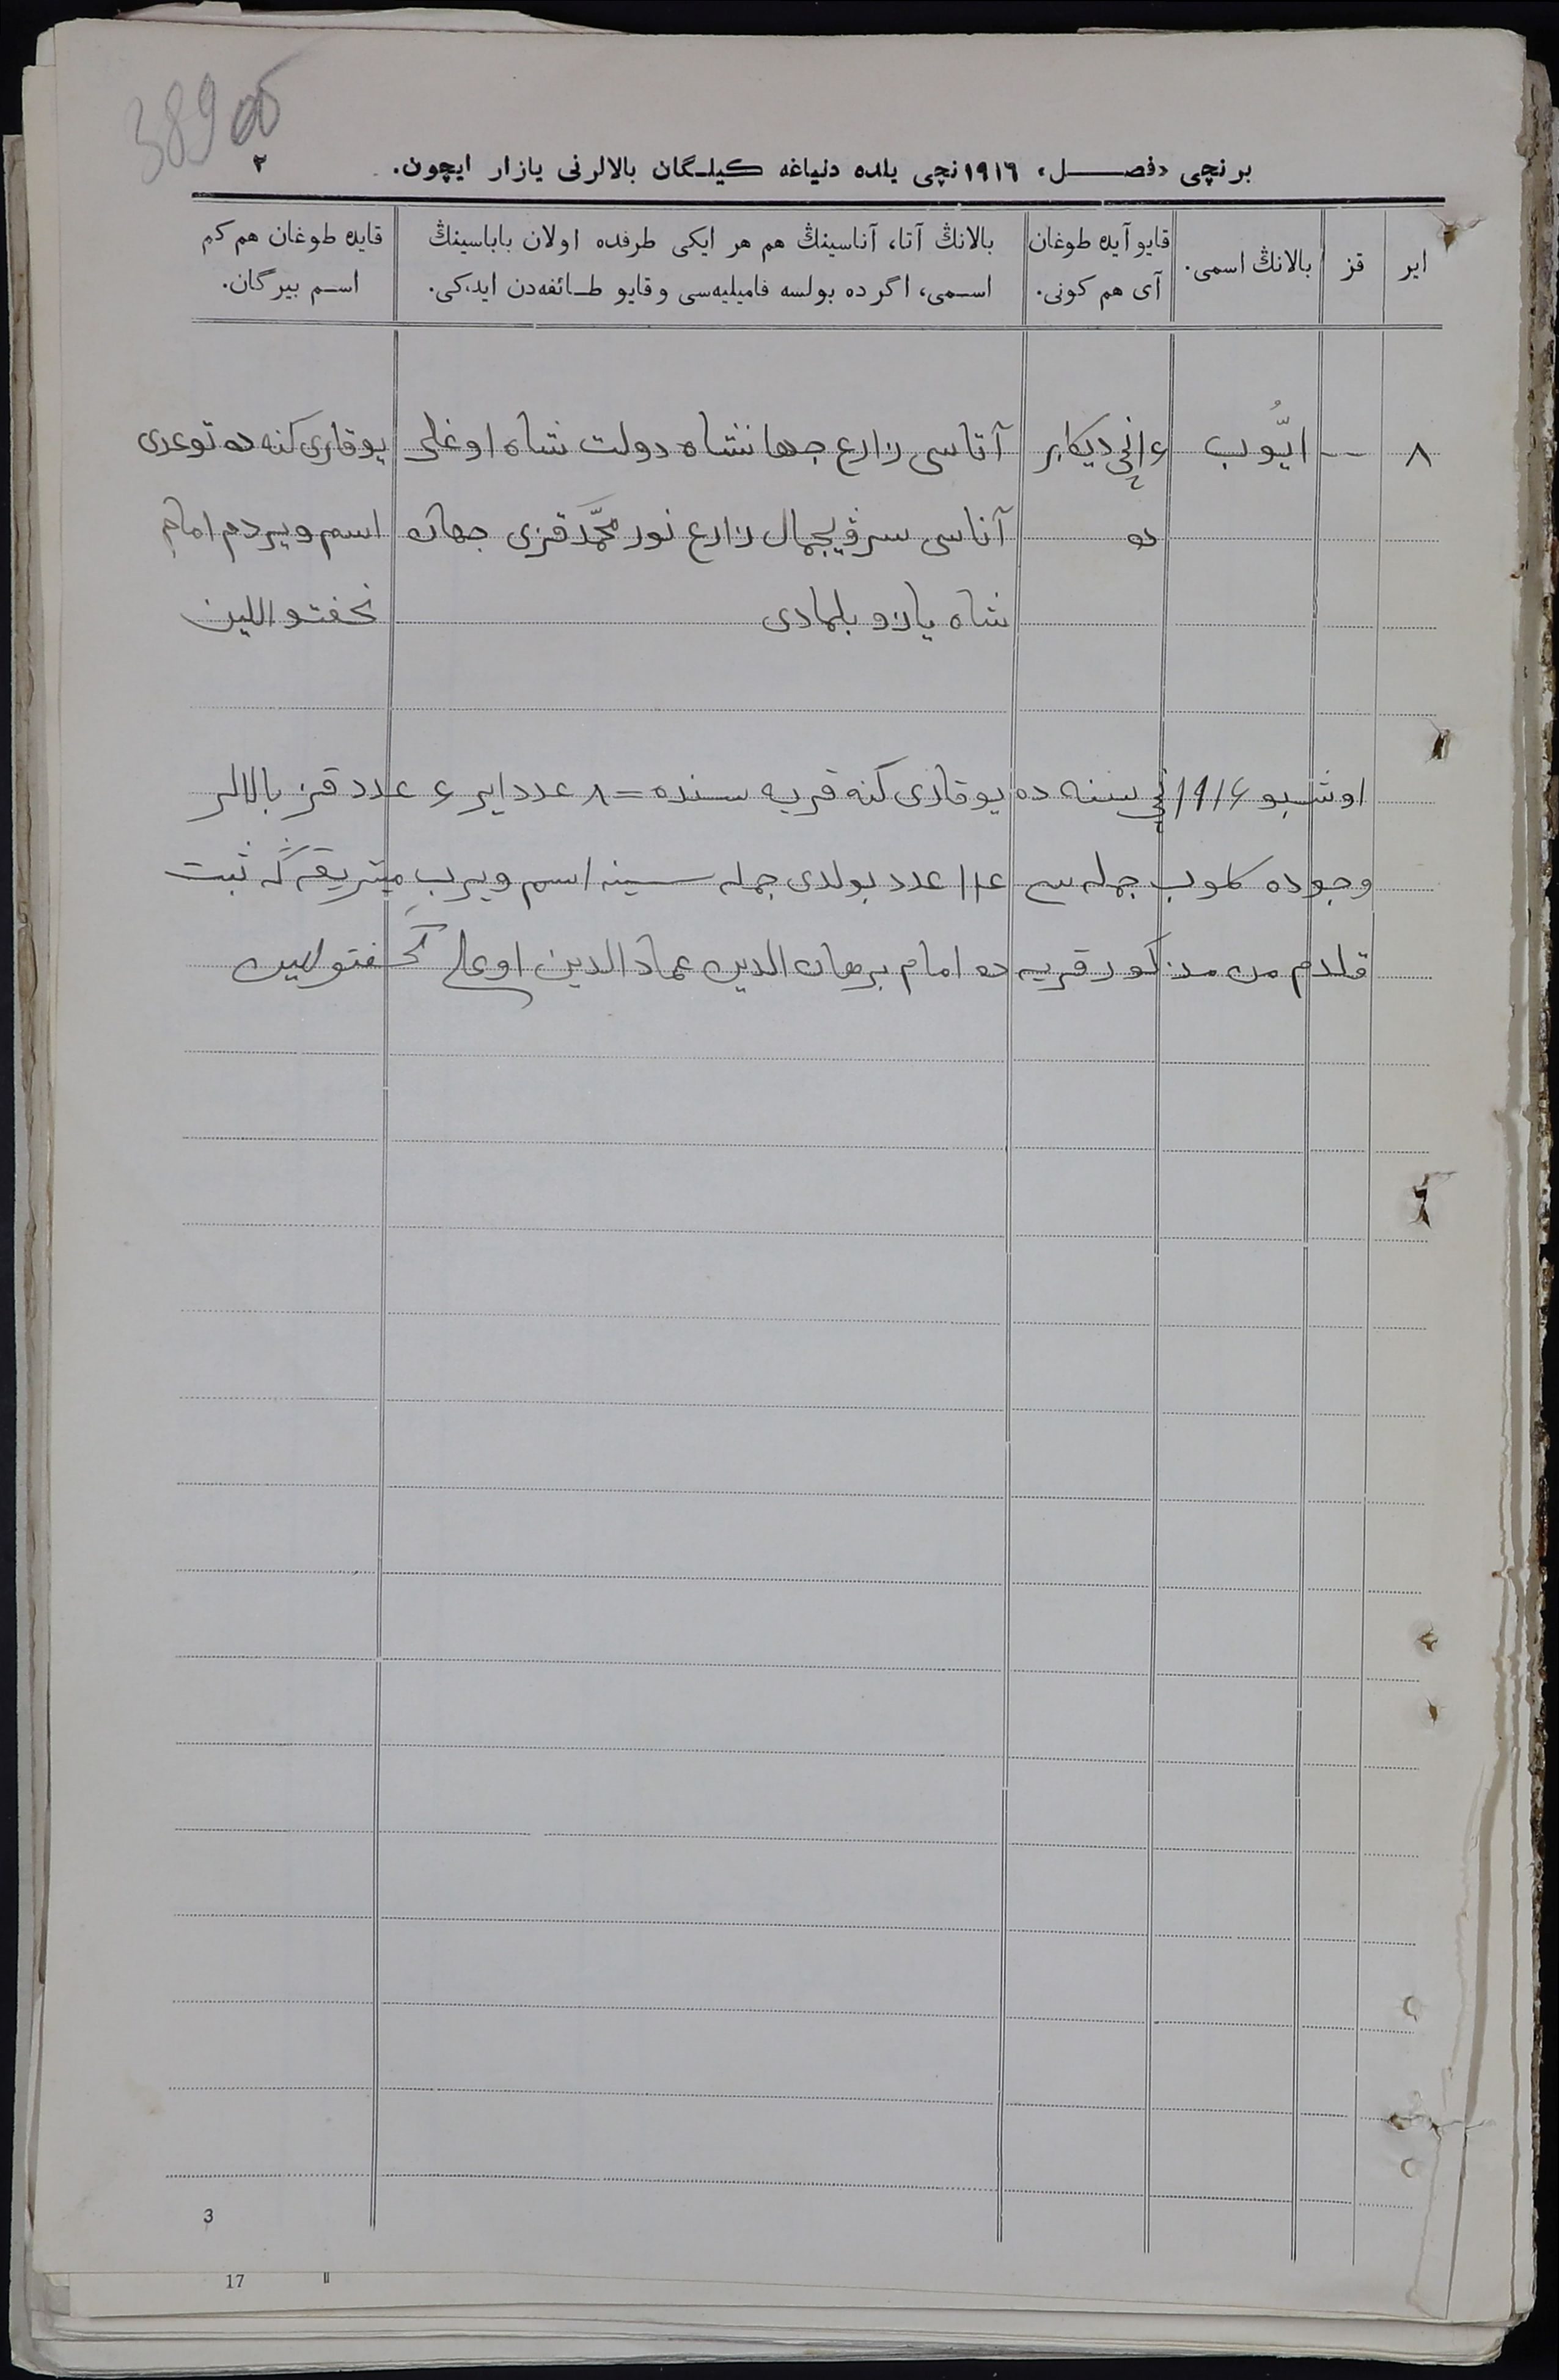 389 об
برنچی «فصل» ۱۹۱۶نچی یلده دنیاغه کیلگان بالالرنی یازار ایچون.
۲
ایر
قز
بالانڭ اسمی.
قایو آیده طوغان
آی هم کونی.
بالانڭ آتا، آناسینڭ هم هر ایکی طرفده اولان باباسینڭ
اسمی، اگر ده بولسه فامیلیه‌سی و قایو طائفه‌دن ایدکی.
قایده طوغان هم کم
اسم بیرگان.
۸ -- ایّوب دیکابر آتاسی زارع جهانشاه دولت شاه اوغلی یوقاری کنه ده توعدی
ده آناسی زارع نور محمّد قزی جهان اسم ویردم امام
شاه یازو بلمادی
اوشبو ۱۹۱۶نچی سنه ده یوقاری کنه قریه سنده = ۸ عدد ایر ۶ عدد قز بالالر
وجوده کلوب جمله سی عدد بولدی جمله سینه اسم ویرب میتریقه گه ثبت
قلدم من مذکور قریه ده امام برهان الدین عماد الدین اوغلی
3
17 II